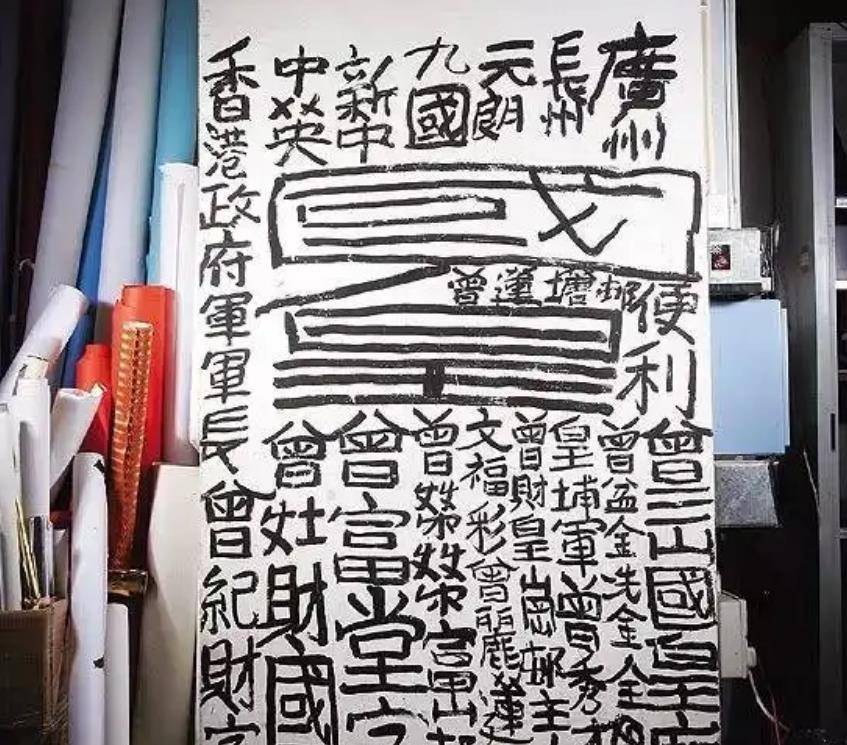 廣州
長州
元朗
九國
新中
中英
國皇
曾蓮塘邨
便利
曾三山國皇
曾盆金冼金全
皇埔軍曾秀
曾財皇崗邨主
文福彩曾麗蓮
曾富山邨
曾富堂
曾灶財國
香港政府軍軍長曾紀財